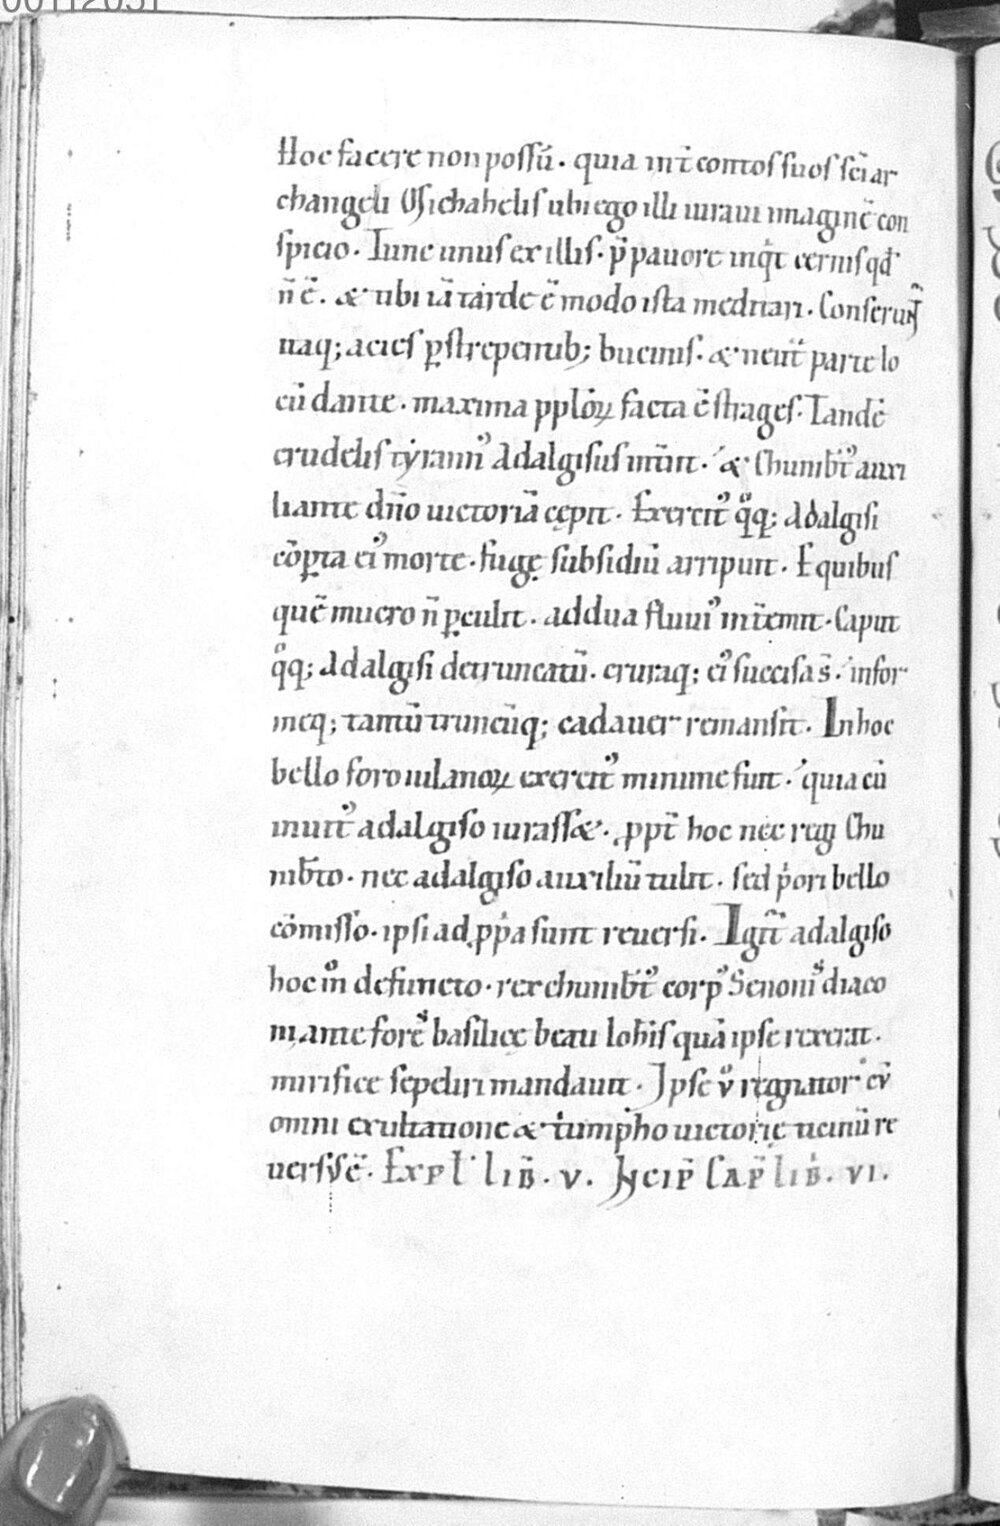 00112031
Hoc facere non possū. quia int̄ contos suos sc̄i ar
changeli Michahelis ubi ego illi iuraui imaginē con
spicio. Tunc unus ex illis. p̄ pauore inqͥt cernis qđ
n̄ ē. & ubi iā tarde ē modo ista meditari. Conserunt̄
itaq; acies ꝑstrepentib; bucinis. & neut̄ parte lo
cū dante. maxima pplōꝝ facta ē strages. Tandē
crudelis tẏrannꝰ Adalgisus int̄iit. & Chunib̄tꝰ auxi
liante dn̄o uictoriā cępit. Exercitꝰ qͦq; Adalgisi
cōꝑta eiꝰ morte. fugę subsidiū arripuit. E quibus
quē mucro n̄ ꝑculit. addua fluuiꝰ int̄emit. Caput
qͦq; Adalgisi detruncatū. cruraq; eiꝰ succisa s̄. infor
meq; tantū truncūq; cadauer remansit. In hoc
bello foroiulanoꝝ exercitꝰ minime fuit. quia cū
inuitꝰ adalgiso iurass&. ꝓpt̄ hoc nec regi Chu
nib̄to. nec adalgiso auxiliū tulit. sed pͥori bello
cōmisso. ipsi ad ꝓpͥa sunt reuersi. Igit̄ adalgiso
hoc mͦ defuncto. rex chunib̄tꝰ corpꝰ Senonis diaco
ni, ante fores basilicę beati ioh̄is quā ipse rexerat.
mirifice sepeliri mandauit. Ipse ṽ regnator cū
omni exultatione & tͥumpho uictorię ticinū re
uersus ē. Expl̄ lib̄. v. Incip̄ cap̄ lib̄. vi.